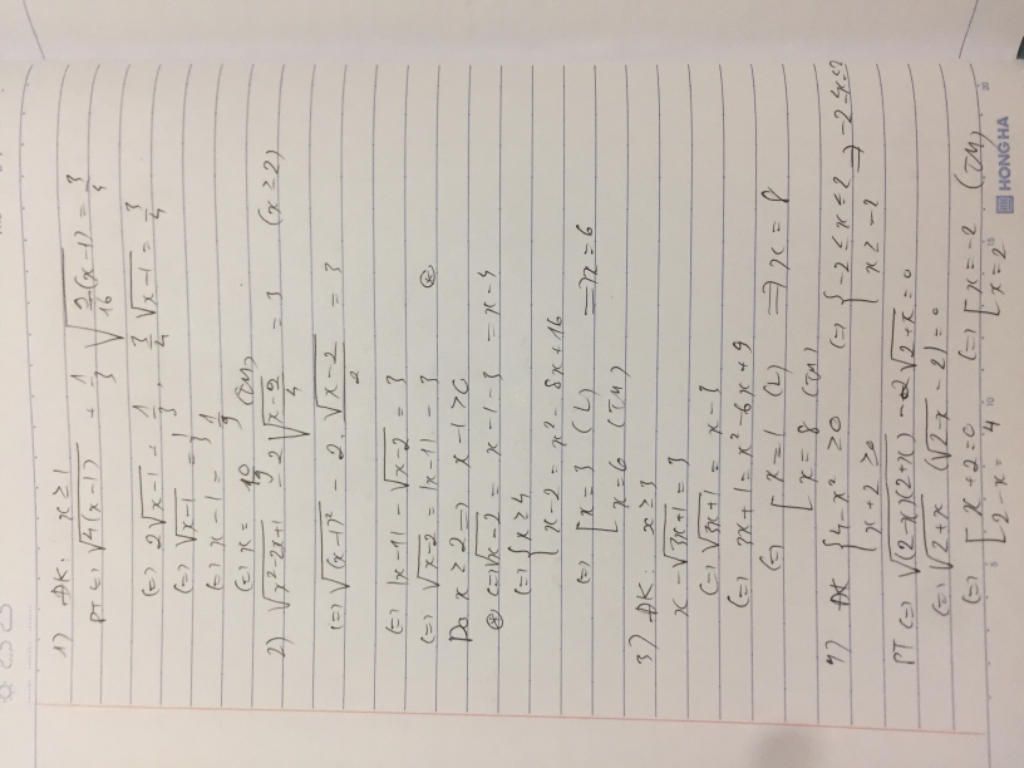 1) ĐK: x ≥ 1
PT (=) √4(x-1) + 1/3 √9/16(x-1) = 3/4
(=) 2√x-1 + 1/3 . 3/4 √x-1 = 3/4
(=) √x-1 = 1/3
(=) x-1 = 1/9
(=) x = 10/9 (TM)
2) √x²-2x+1 - 2√x-2/4 = 3 (x ≥ 2)
(=) √(x-1)² - 2. √x-2/2 = 3
(=) |x-1| - √x-2 = 3
(=) √x-2 = |x-1| - 3 (*)
Do x ≥ 2 => x-1 > 0
(*) (=) √x-2 = x-1-3 = x-4
(=) { x ≥ 4
x-2 = x²-8x+16
(=) [ x=3 (L) => x=6
x=6 (TM)
3) ĐK: x ≥ 3
x-√3x+1 = 3
(=) √3x+1 = x-3
(=) 3x+1 = x²-6x+9
(=) [ x=1 (L) => x=8
x=8 (TM)
4) ĐK { 4-x² ≥ 0 (=) { -2 ≤ x ≤ 2 => -2≤x≤2
x+2 ≥ 0 x ≥ -2
PT (=) √(2-x)(2+x) - 2√2+x = 0
(=) √2+x (√2-x - 2) = 0
(=) [ x+2=0 (=) [ x=-2 (TM)
2-x=4 x=2
5 10 15 20
HONG HA